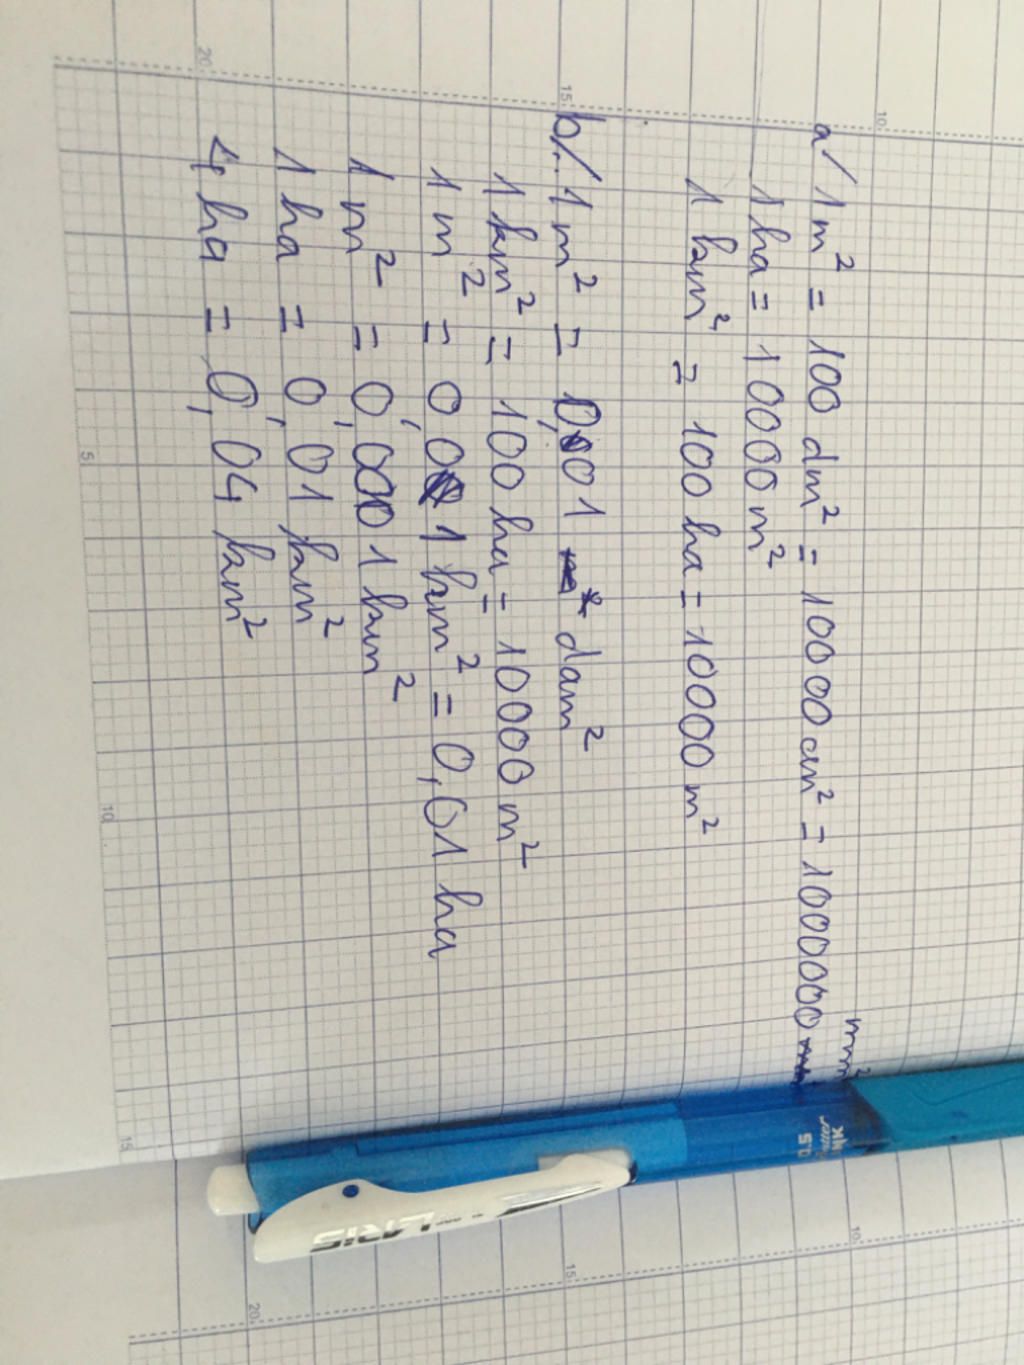 a/ 1 m² = 100 dm² = 10000 cm² = 1000000 mm²
1 ha = 10000 m²
1 km² = 100 ha = 10000 m²
b/. 1 m² = 0,01 dam²
1 km² = 100 ha = 10000 m²
1 m² = 0,001 km² = 0,01 ha
1 m² = 0,0001 km²
1 ha = 0,01 km²
4 ha = 0,04 km²
10
15
20
5
10
15
10
15
20
LARIS
0.5